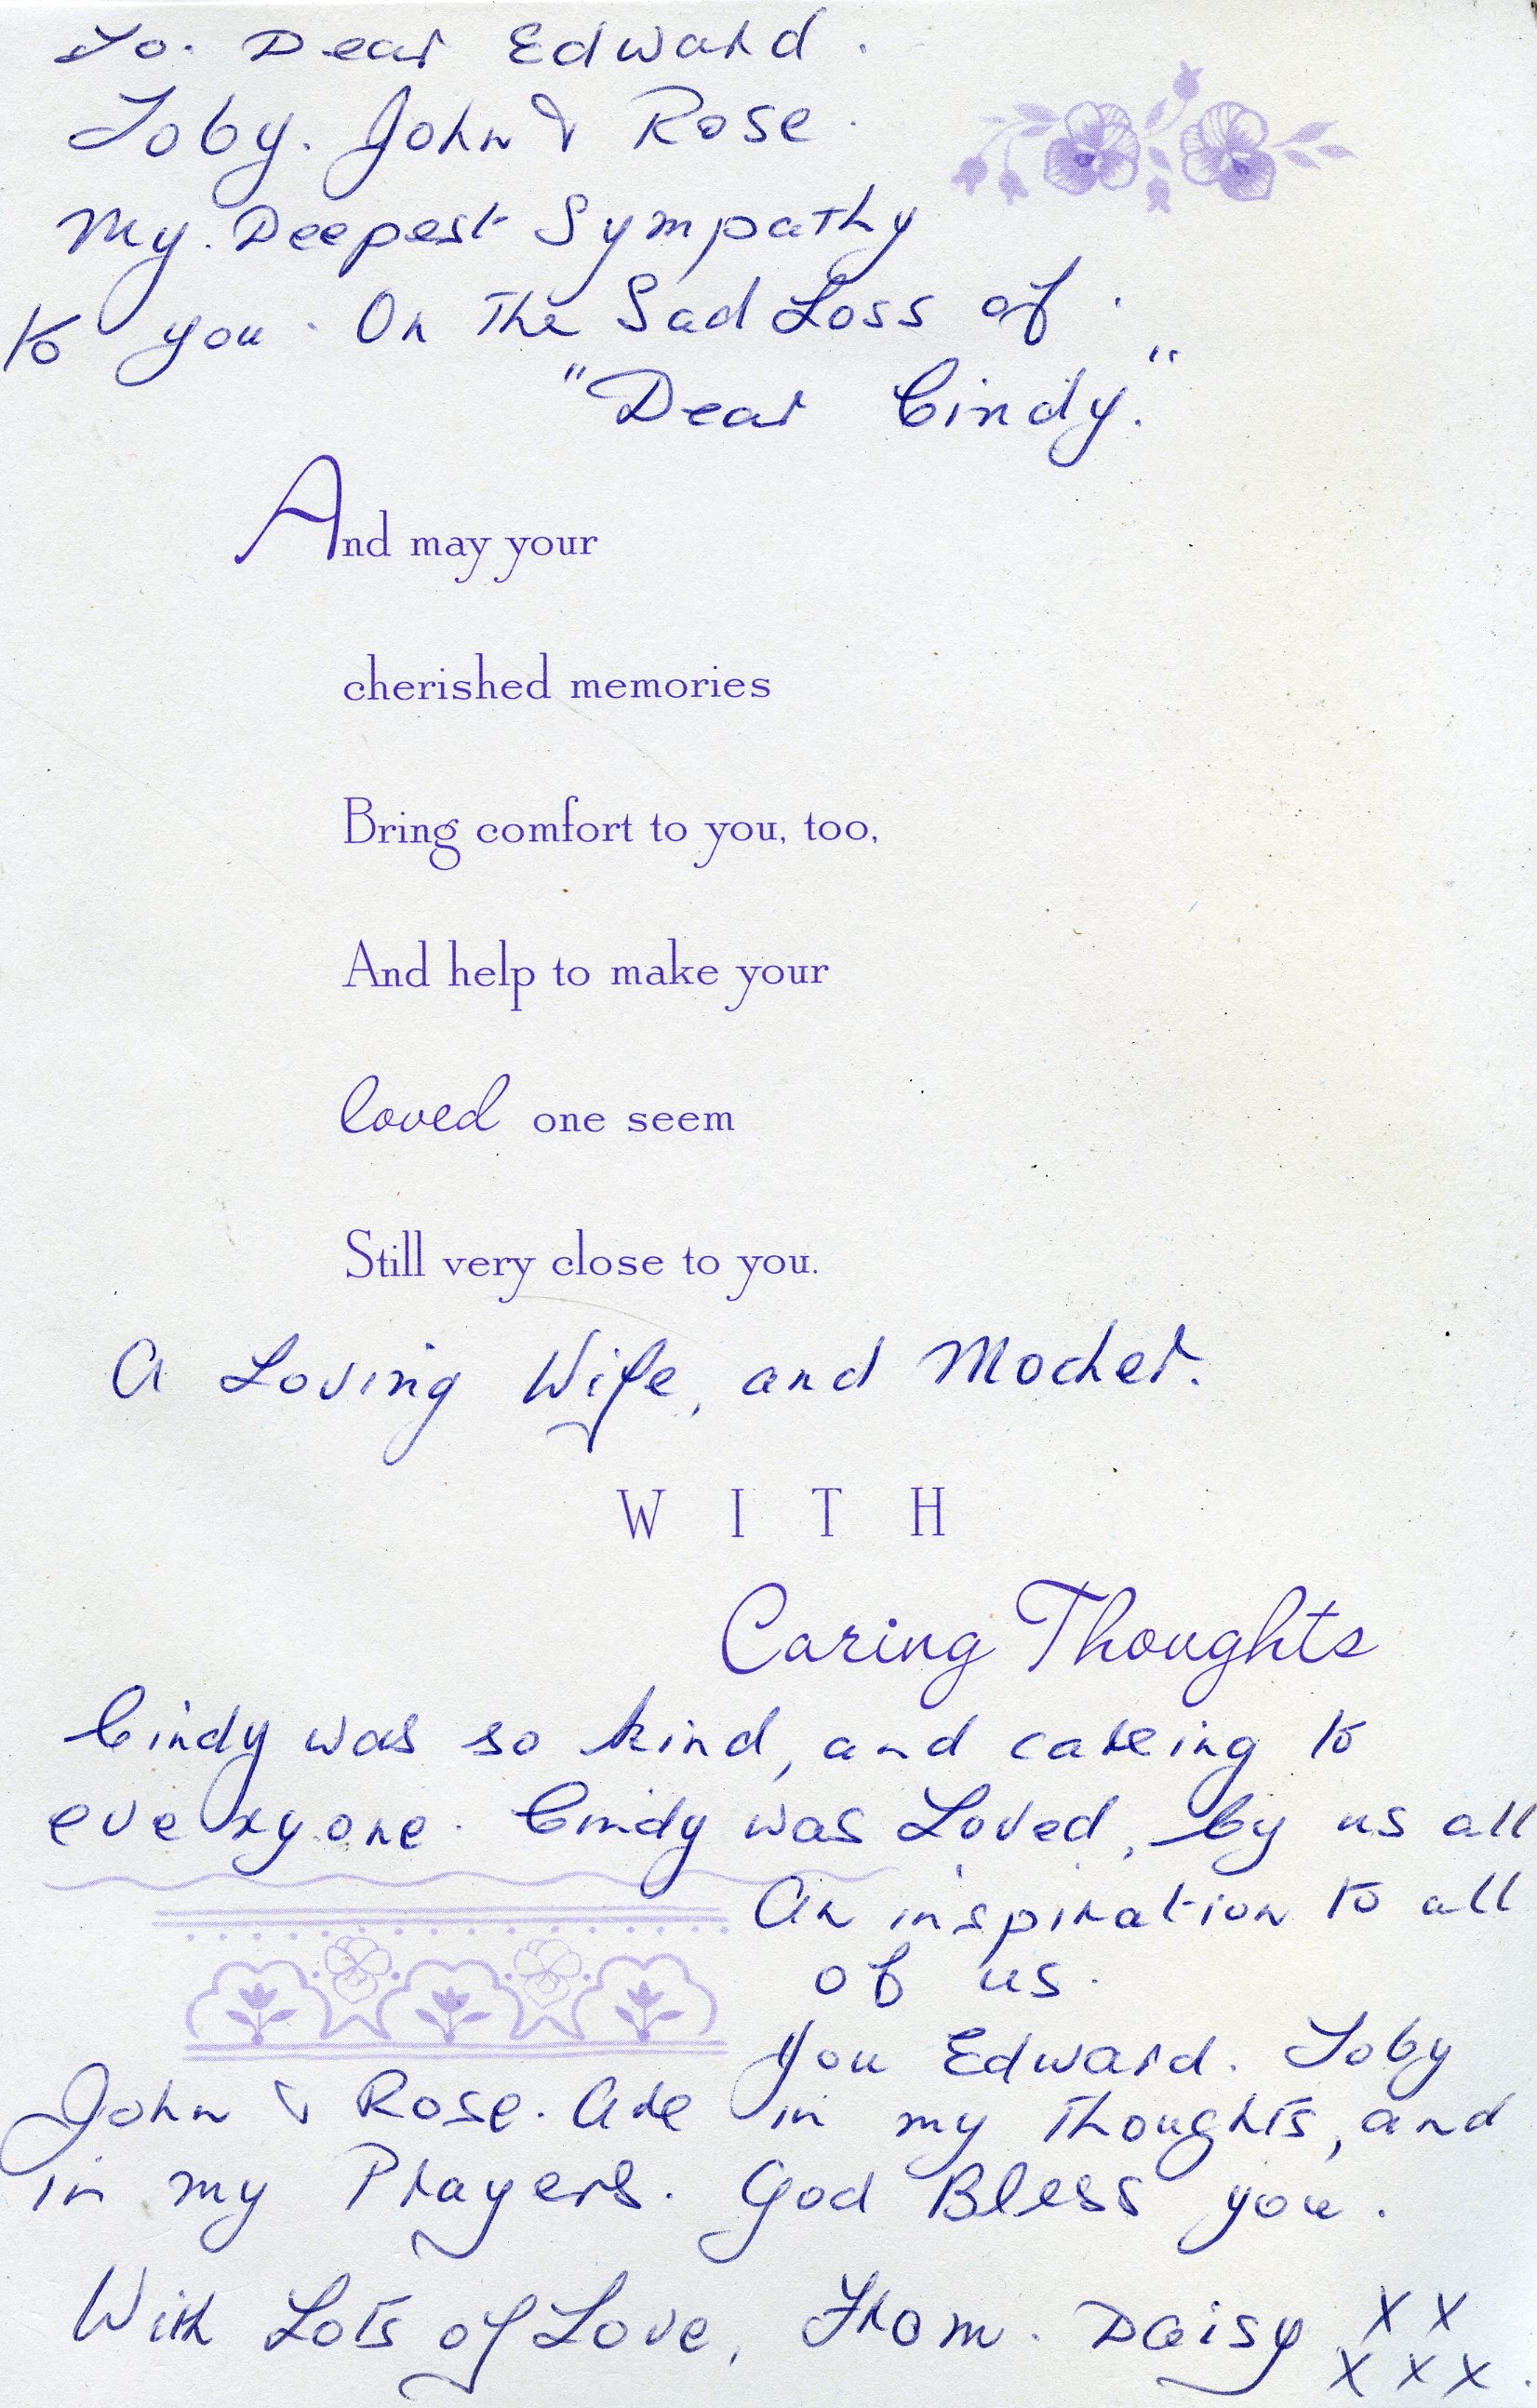 To. Dear Edward.
Toby. John & Rose.
My. Deepest Sympathy
to you. On The Sad Loss of.
"Dear Cindy."
And may your
cherished memories
Bring comfort to you, too,
And help to make your
loved one seem
Still very close to you.
A Loving Wife, and Mother.
WITH
Caring Thoughts
Cindy was so kind, and careing to
everyone. Cindy was Loved, by us all
An inspiration to all
of us.
You Edward. Toby
John & Rose. Are in my Thoughts, and
in my Prayers. God Bless you.
With Lots of Love, From. Daisy XX
XXX.